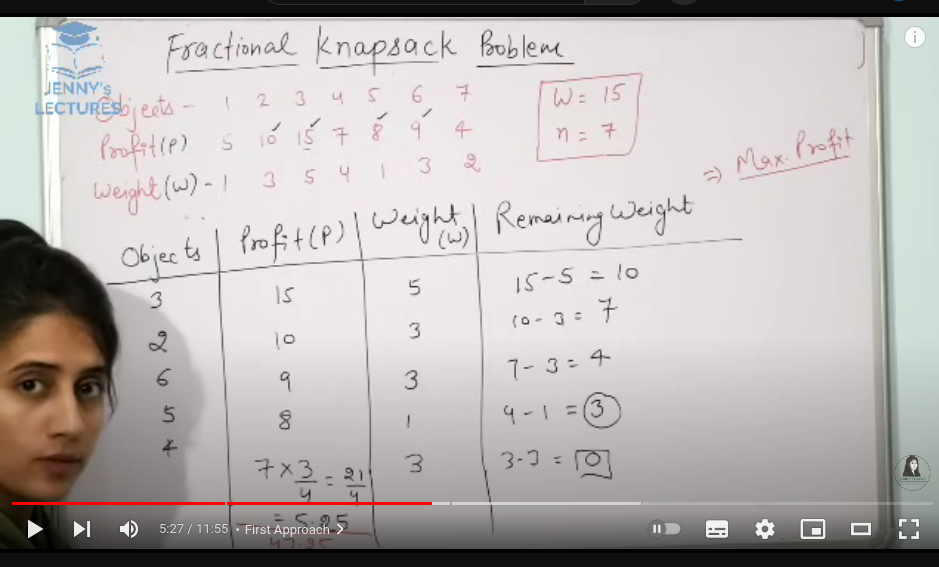 Fractional Knapsack Boblem
JENNY's
LECTURES
Objects - 1 2 3 4 5 6 7
Profit(P) 5 10 15 7 8 9 4
Weight(W) - 1 3 5 4 1 3 2
W = 15
n = 7
⇒ Max. Profit
Objects Profit(P) Weight (W) Remaining Weight
3 15 5 15-5 = 10
2 10 3 10-3 = 7
6 9 3 7-3 = 4
5 8 1 4-1 = 3
4 7×3/4 = 21/4 3 3-3 = 0
= 5.25
47.25
5:27 / 11:55 • First Approach >